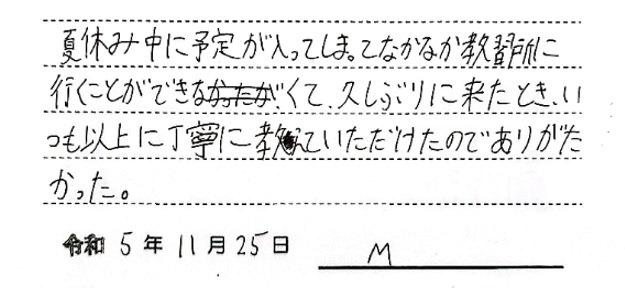 夏休み中に予定が入ってしまってなかなか教習所に
行くことができなくて、久しぶりに来たとき、い
つも以上に丁寧に教えていただけたのでありがた
かった。
令和 5 年 11 月 25 日 M